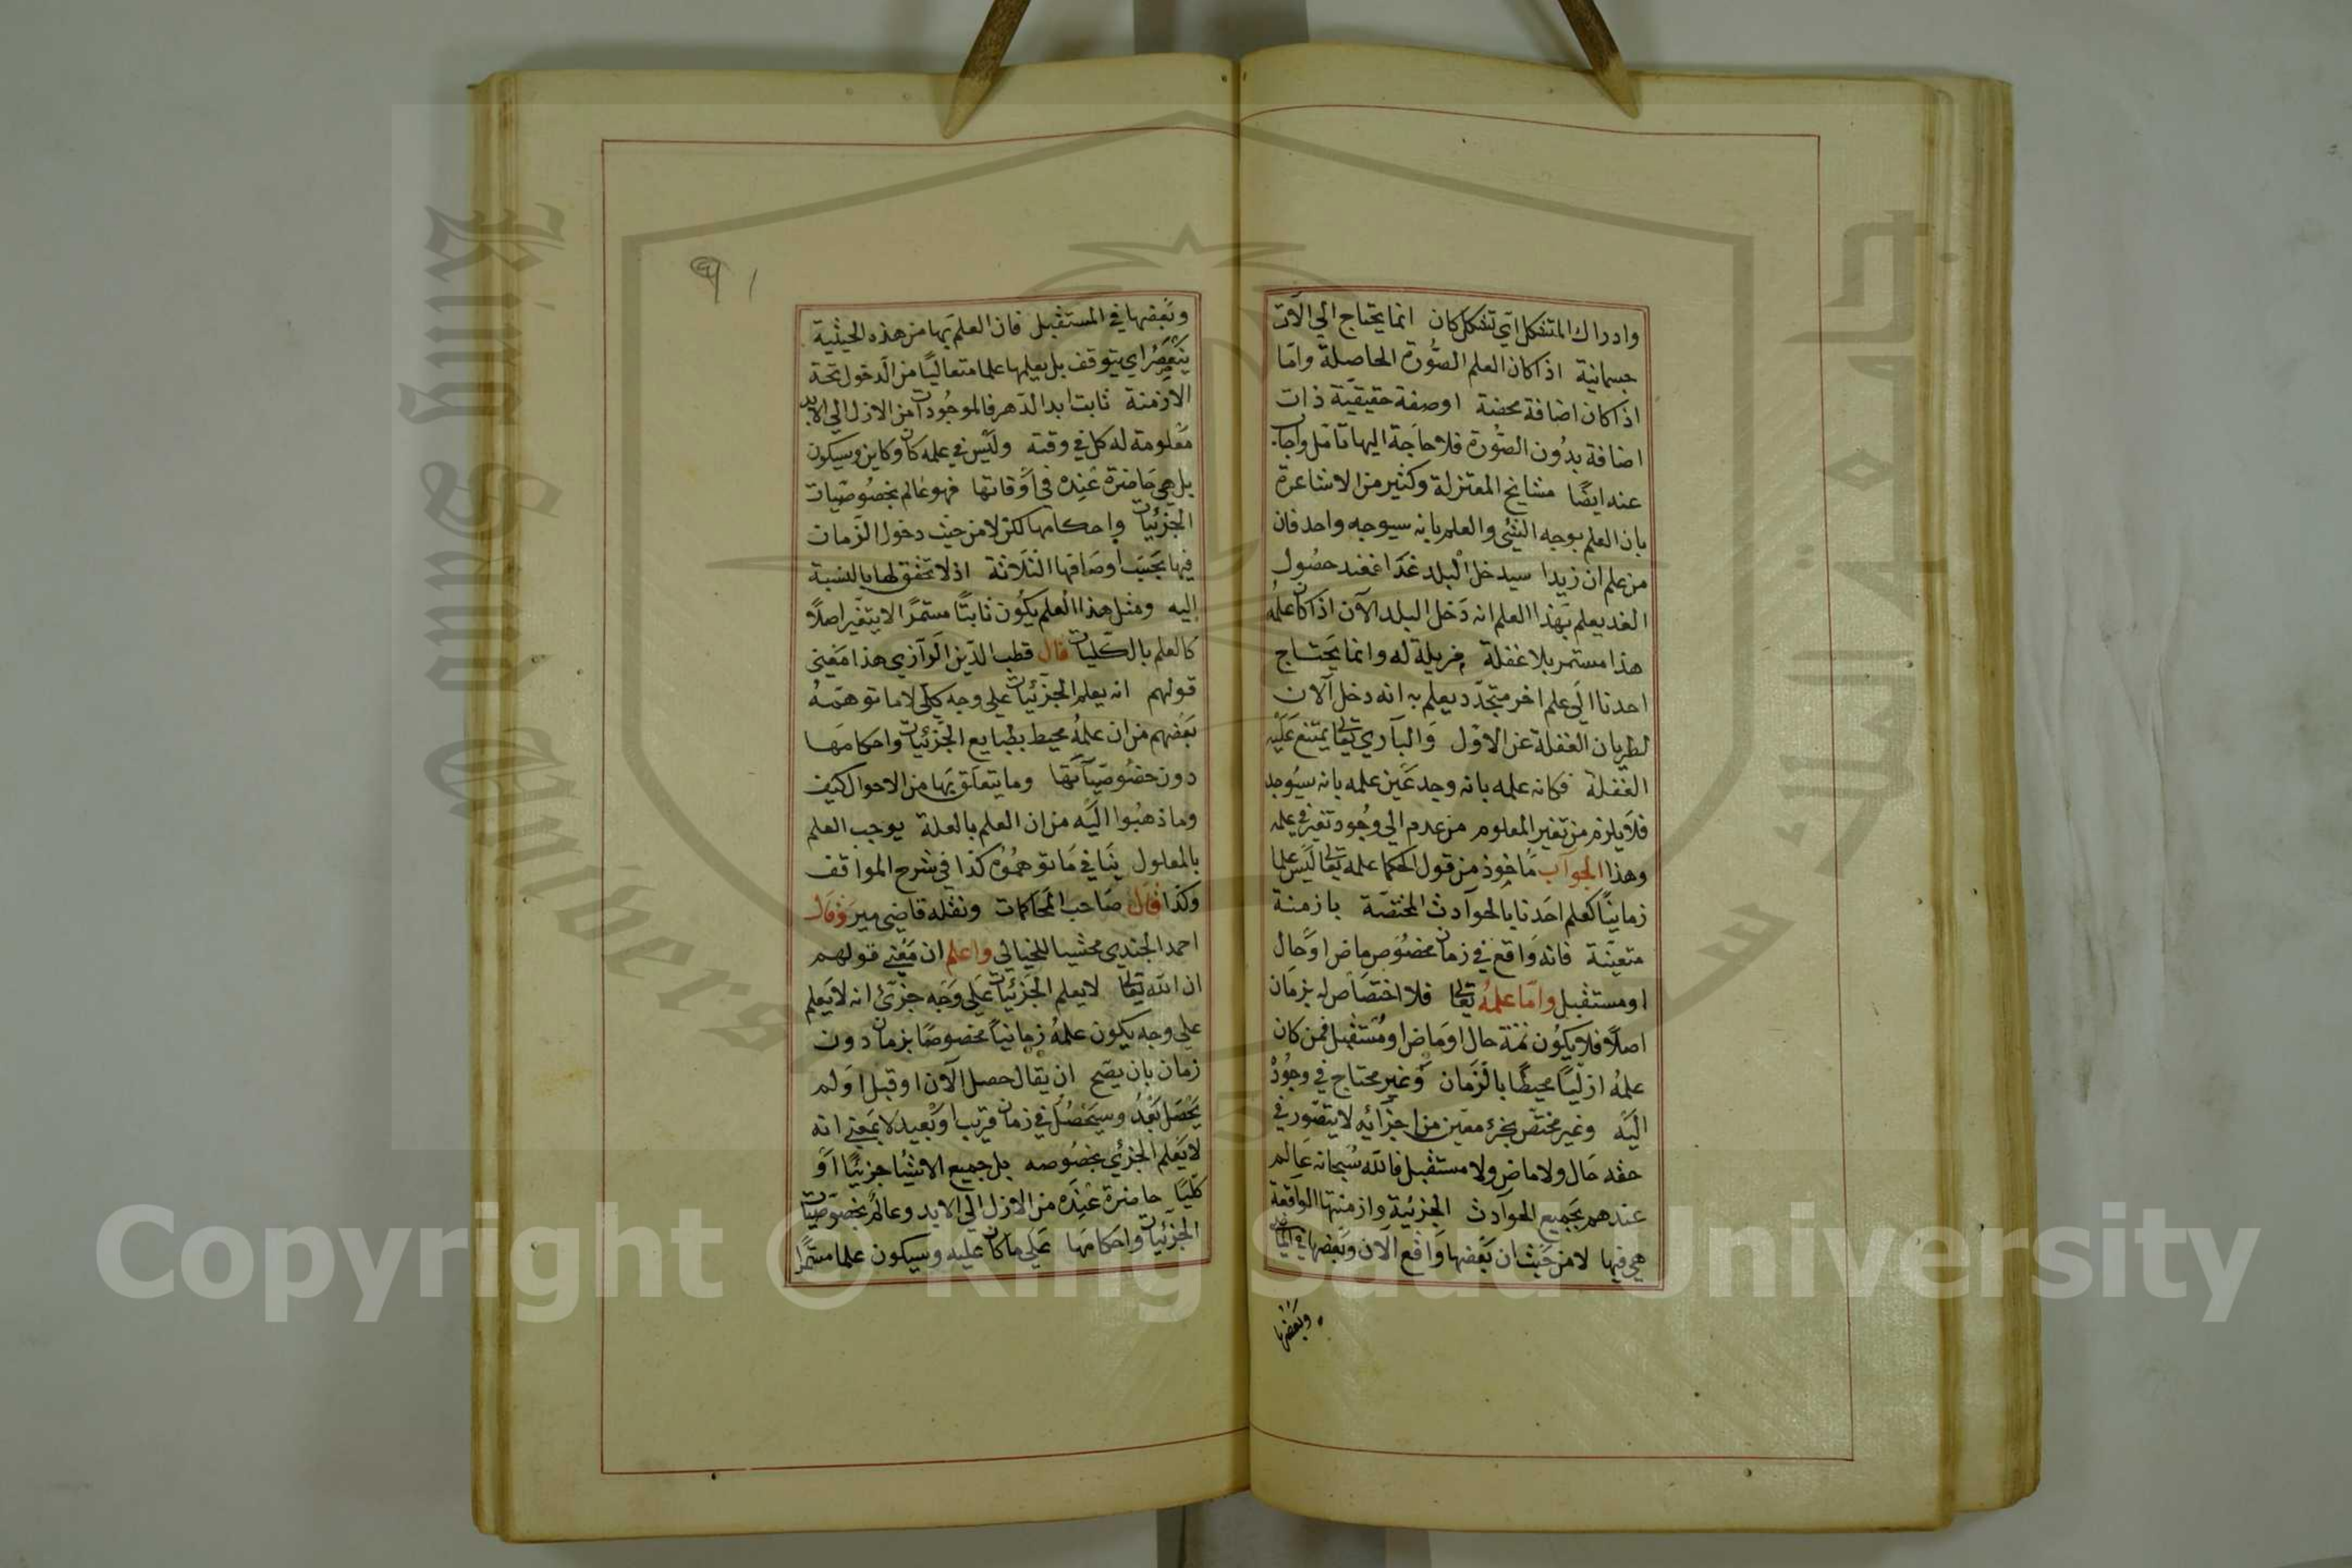 وادراك المتشكل اي تشكل كان انما يحتاج الي الآت
جسمانية اذا كان العلم الصورة الحاصلة واما
اذا كان اضافة محضة او صفة حقيقية ذات
اضافة بدون الصورة فلا حاجة اليها تامل واجاب
عنه ايضا مشايخ المعتزلة وكثير من الاشاعرة
بان العلم بوجه الشئ والعلم بانه سيوجه واحد فان
من علم ان زيدا سيدخل البلد غدا فعند حصول
الغد يعلم بهذا العلم انه دخل البلد الآن اذا كان علمه
هذا مستمر بلا غفلة مزيلة له وانما يحتاج
احدنا الي علم اخر متجدد يعلم به انه دخل الآن
لطريان الغفلة عن الاول والباري تعالى يمتنع عليه
الغفلة فكانه علمه بانه وجد عين علمه بانه سيوجد
فلا يلزم من تغير المعلوم من عدم الي وجود تغير في علمه
وهذا الجواب ماخوذ من قول الحكما علمه تعالى ليس علما
زمانيا كعلم احدنا بالحوادث المختصة بازمنة
متعينة فانه واقع في زمان مخصوص ماض او حال
او مستقبل واما علمه تعالى فلا اختصاص له بزمان
اصلا فلا يكون ثمة حال او ماض او مستقبل فمن كان
علمه ازليا محيطا بالزمان وغير محتاج في وجوده
اليه وغير مختص بجزء معين من اجزائه لا يتصور في
حقه حال ولا ماض ولا مستقبل فالله سبحانه عالم
عندهم بجميع الحوادث الجزئية وازمنتها الواقعة
هي فيها لا من حيث ان بعضها واقع الآن وبعضها في الماضي
وبعضها
وبعضها في المستقبل فان العلم بها من هذه الحيثية
يتغير اي يتوقف بل يعلمها علما متعاليا من الدخول تحت
الازمنة ثابت ابد الدهر فالموجودات من الازل الي الابد
معلومة له كل في وقته وليس في علمه كان وكاين وسيكون
بل هي حاضرة عنده في اوقاتها فهو عالم بخصوصيات
الجزئيات واحكامها لكن لا من حيث دخول الزمان
فيها بحسب اوصافها الثلاثة اذ لا تحقق لها بالنسبة
اليه ومثل هذا العلم يكون ثابتا مستمرا لا يتغير اصلا
كالعلم بالكليات قال قطب الدين الرازي هذا معني
قولهم انه يعلم الجزئيات علي وجه كلي لا ما توهمه
بعضهم من ان علمه محيط بطبايع الجزئيات واحكامها
دون خصوصياتها وما يتعلق بها من الاحوال كيف
وما ذهبوا اليه من ان العلم بالعلة يوجب العلم
بالمعلول ينافي ما توهموه كذا في شرح المواقف
وكذا قال صاحب المحاكمات ونقله قاضي مير وقال
احمد الجندي محشيا للخيالي واعلم ان معني قولهم
ان الله تعالى لا يعلم الجزئيات علي وجه جزئ انه لا يعلم
علي وجه يكون علمه زمانيا مخصوصا بزمان دون
زمان بان يصح ان يقال حصل الآن او قبل او لم
يحصل بعد وسيحصل في زمان قريب او بعيد لا بمعني انه
لا يعلم الجزئي بخصوصه بل جميع الاشيا جزئيا او
كليا حاضرة عنده من الازل الي الابد وعالم بخصوصيات
الجزئيات واحكامها علي ما كان عليه وسيكون علما مستمرا
King Saud University
Copyright © King Saud University